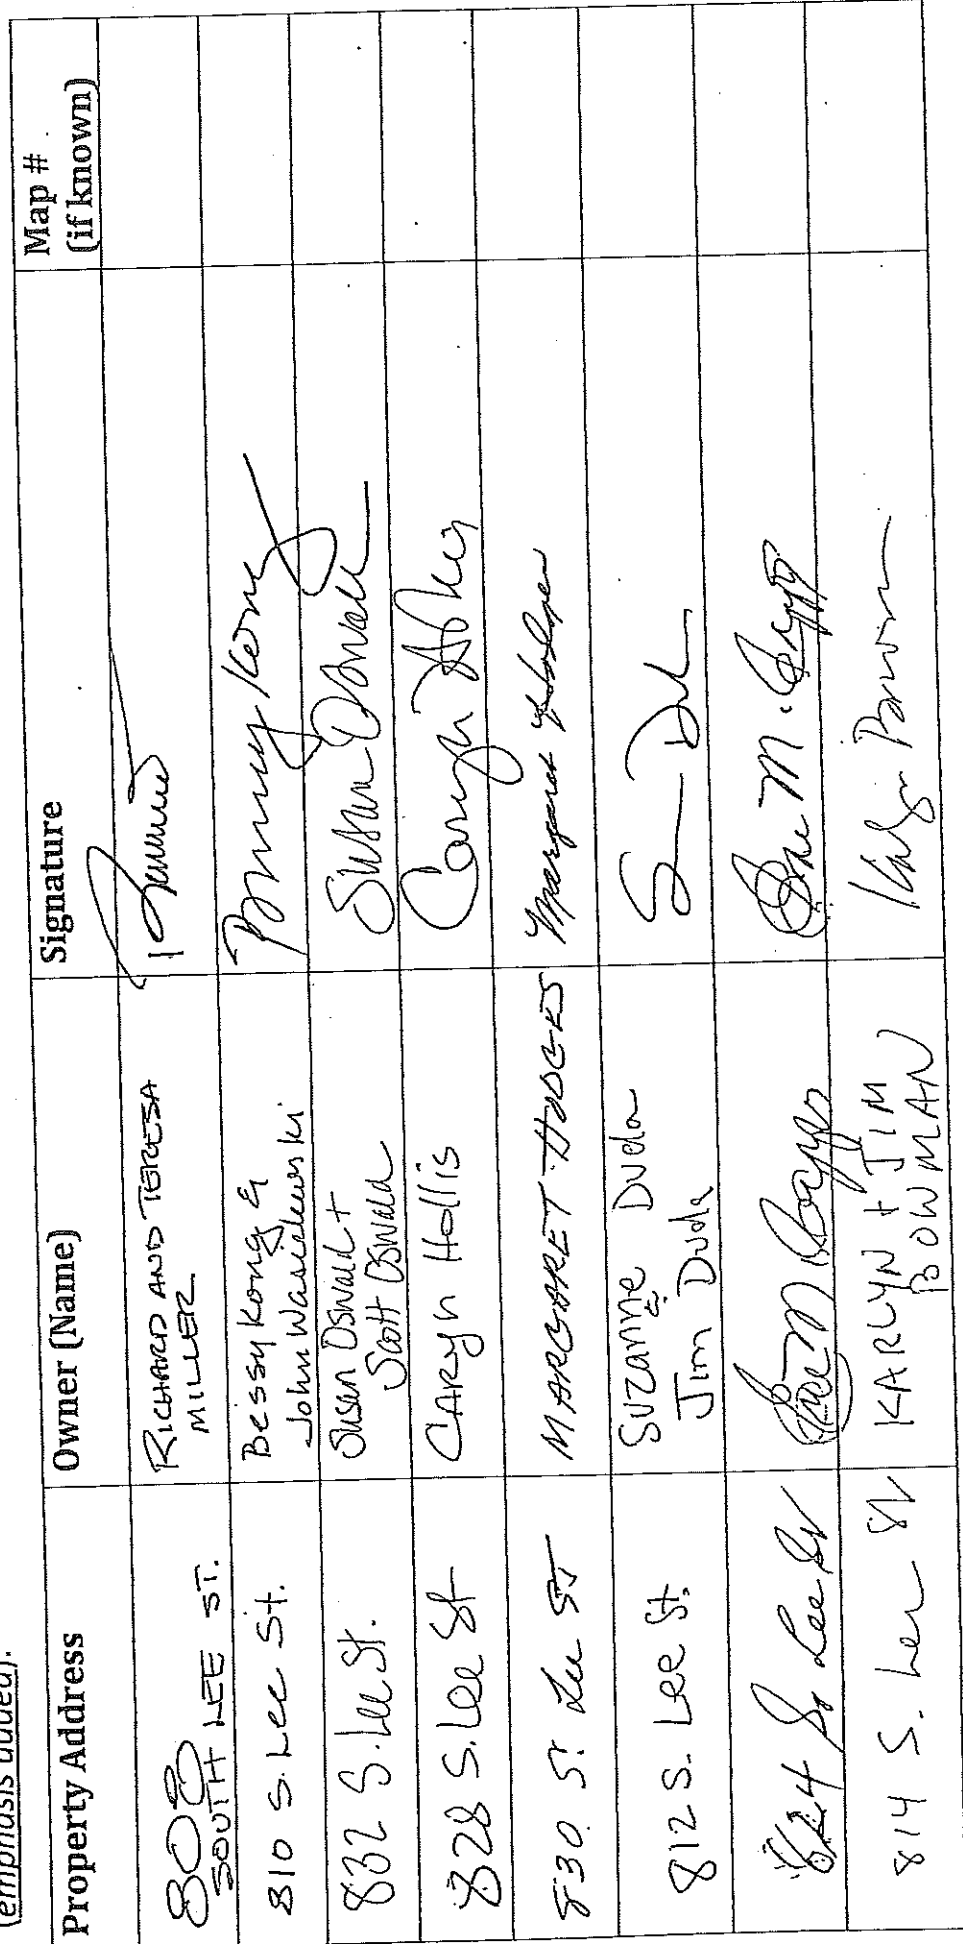 (emphasis added).
Property Address Owner (Name) Signature Map # (if known)
808 SOUTH LEE ST. RICHARD AND TERESA MILLER
810 S. Lee St. Bessy Kong & John Wasielewski
832 S. Lee St. Susan Oswald + Scott Oswald Susan Oswald
828 S. Lee St CARyn Hollis Caryn Hollis
830 S. Lee ST MARGARET HODGES Margaret Hodges
812 S. Lee St. Suzanne & Jim Duda Duda
824 So Lee St
814 S. Lee St KARLYN + JIM BOWMAN Karlyn Bowman